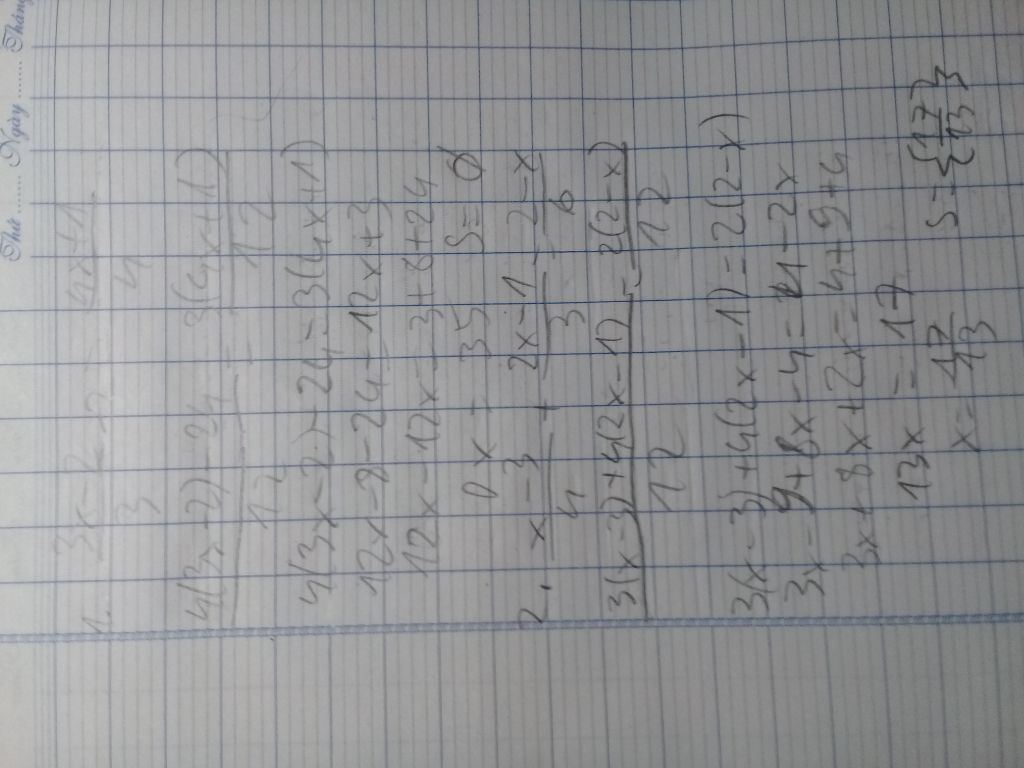 Thứ ........ Ngày ........ Tháng
1. (3x-2)/3 - 2 = (4x+1)/4
(4(3x-2)-24)/12 = (3(4x+1))/12
4(3x-2)-24 = 3(4x+1)
12x-8-24 = 12x+3
12x-12x = 3+8+24
0x = 35 S = ∅
2. (x-3)/4 + (2x-1)/3 = (2-x)/6
(3(x-3)+4(2x-1))/12 = (2(2-x))/12
3(x-3)+4(2x-1) = 2(2-x)
3x-9+8x-4 = 4-2x
3x+8x+2x = 4+9+4
13x = 17
x = 17/13 S = {17/13}